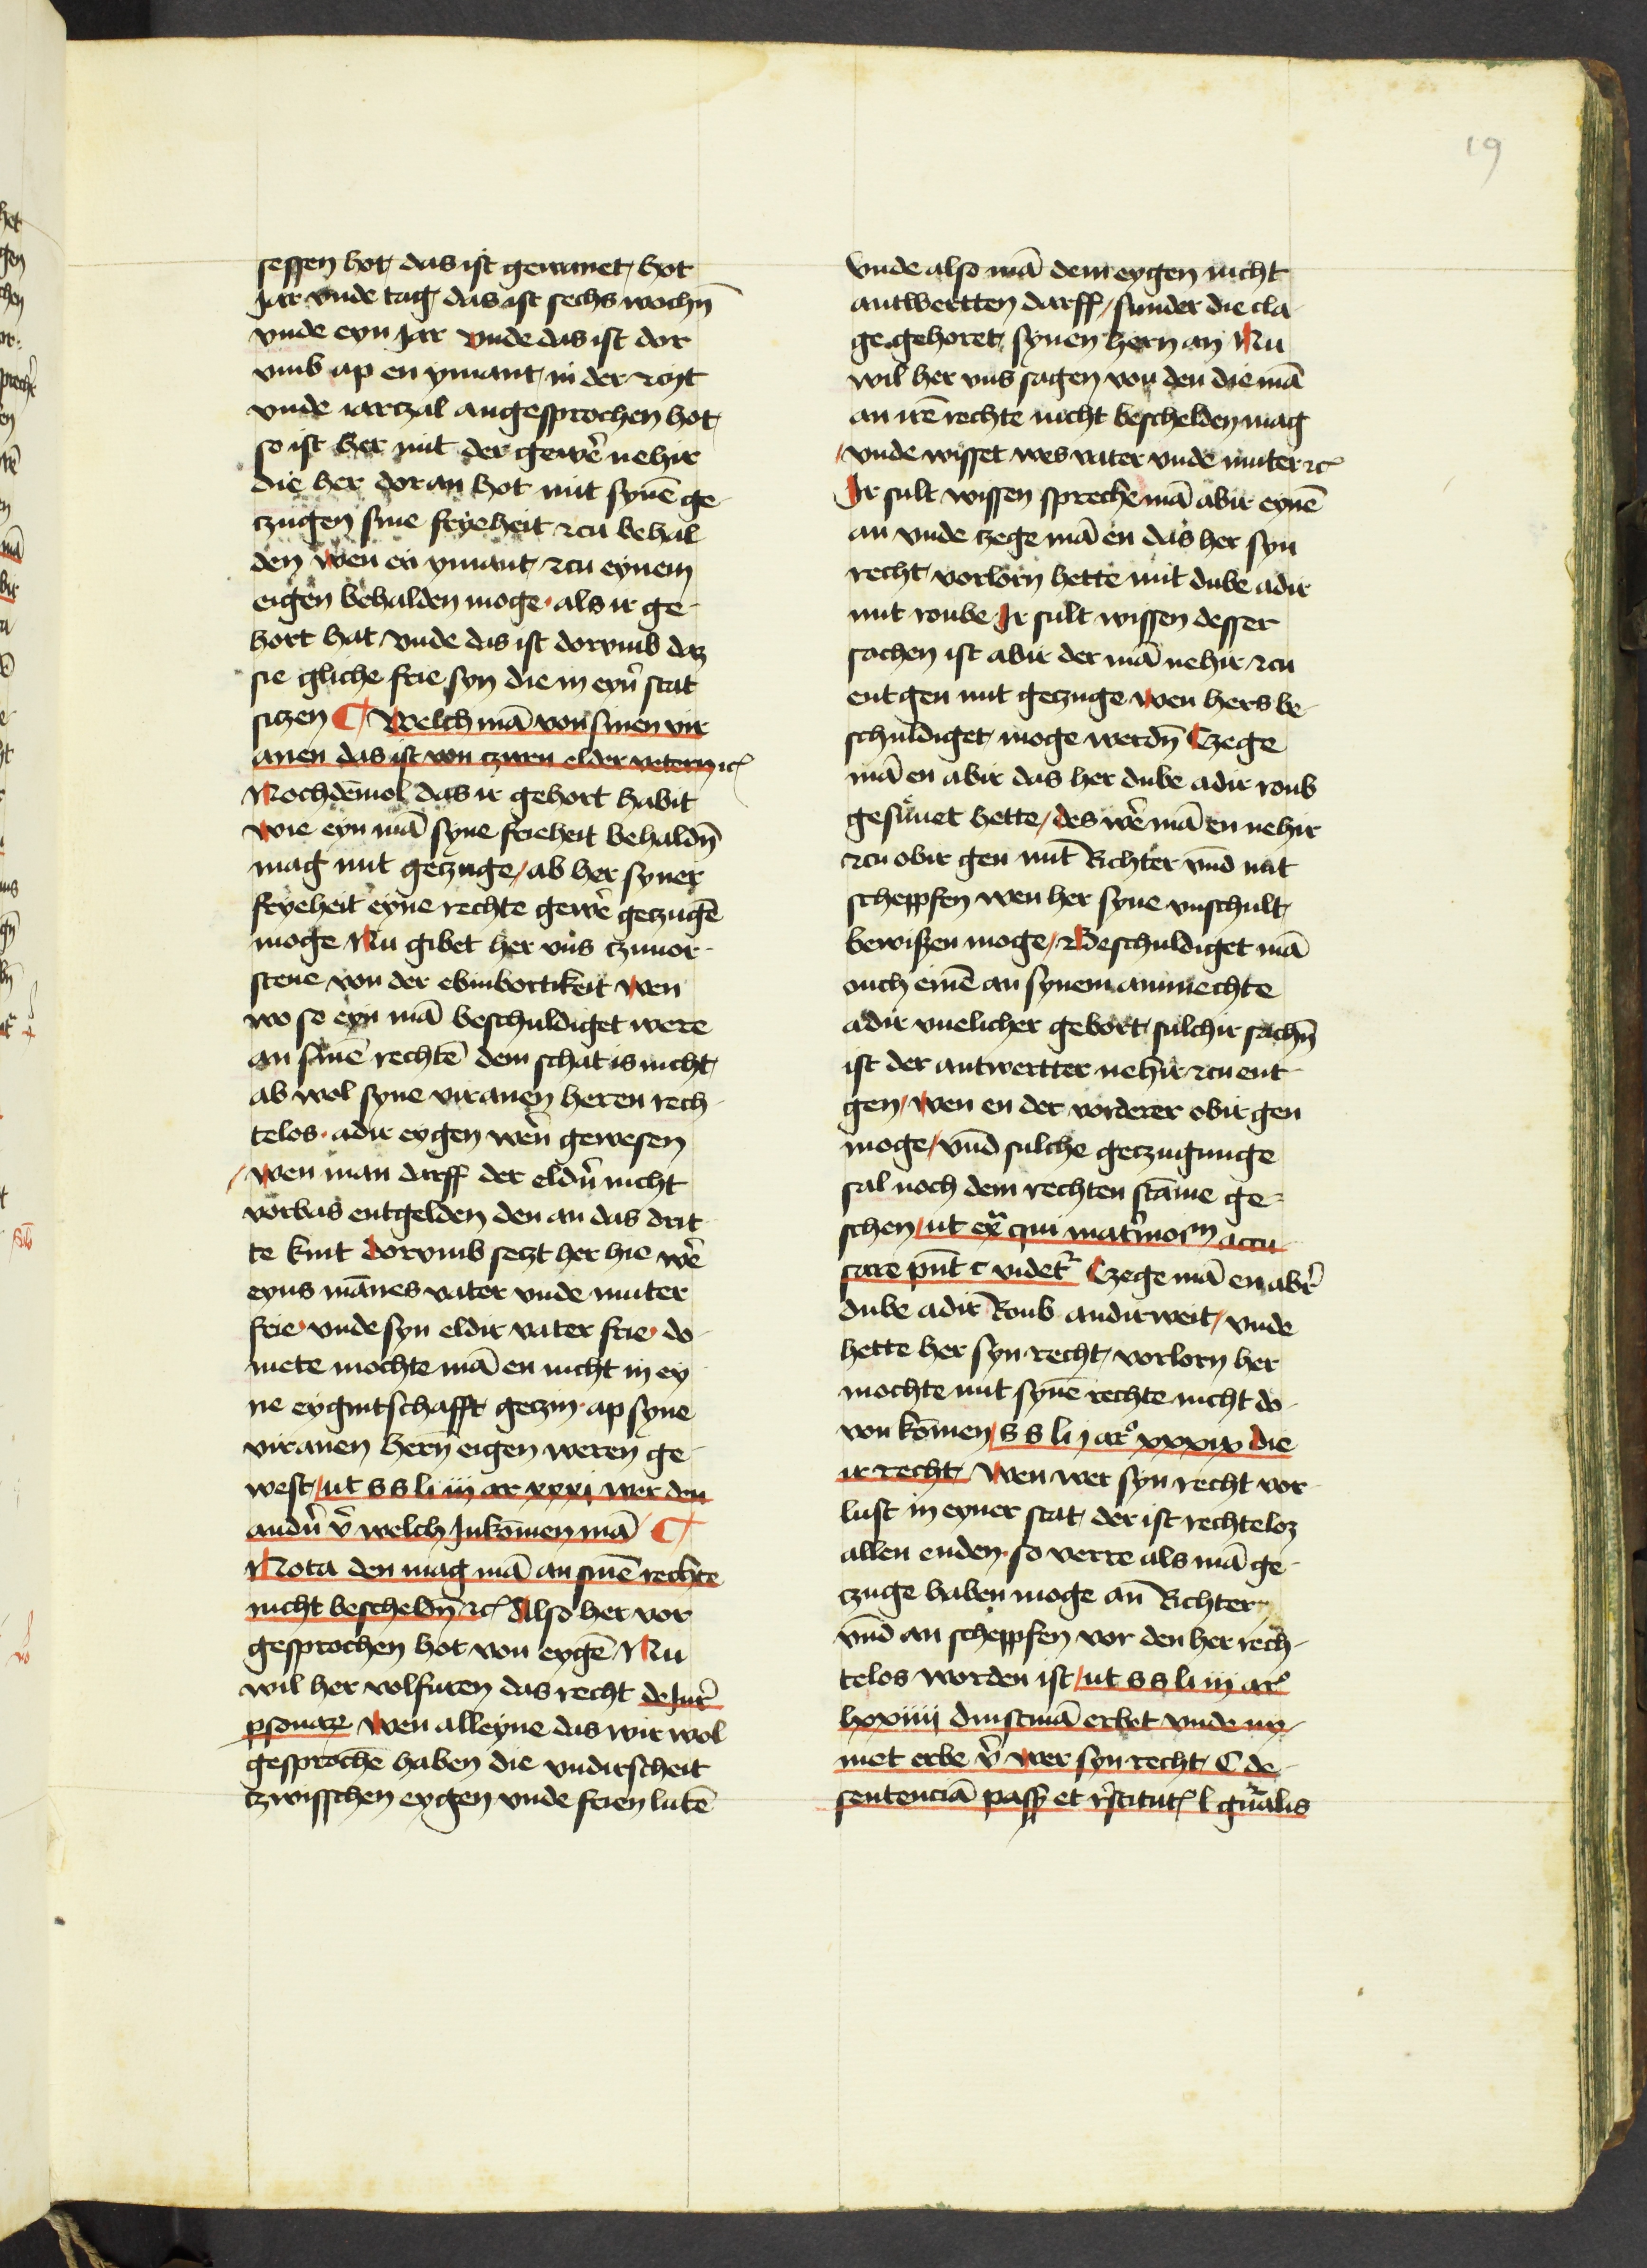 19
sessen hot das ist gewanet hot
Jar vnde tag das ist sechs wochn̄
vnde eyn Jar vnde das ist dor
vmb ap en ymant in der czijt
vnde iarczal angesprochen hot
so ist her mit der gewer̄ nehir
die her dor an hot mit synē ge-
czugen sine fryeheit czu behal
den wen en ymant czu eynem
eigen behalden moge als ir ge-
hort hat vnde das ist dorvmb daz
sie gliche frie syn die in eyn̄ stat
siczen Welch mā von sinen vir
anen das ist von czwen elder vetern ꝛc
Nochdēmol das ir gehort habit
wie eyn mā syne frieheit behaldn̄
mag mit geczuge / ab her syner
fryeheit eyne rechte gewer̄ geczugē
moge Nu gibet her vns czuuor-
stene von der ebinbortikeit wen
wo so eyn mā beschuldiget were
an sinē rechtē dem schat is nicht
ab wol syne viranen heren rech-
telos adir eygen wern̄ gewesen
/ wen man darff der eldn̄ nicht
vorbas entgelden den an das drit
te kint Dorvmb seczt her hie wer̄
eyns mānes vater vnde muter
frie vnde syn eldir vater frie do-
mete mochte mā en nicht in ey
ne eygintschafft geczin ap syne
viranen hern̄ eigen weren ge-
west / ut s s li iii ar xxxi wer den
andn̄ v̄ welch Inkōmen mā
Nota den mag mā an sinē rechte
nicht bescheldn̄ ꝛc Also her vor
gesprochen hot von eygē Nu
wil her volfuren das recht de Jur̄
psonaꝝ Wen alleyne das wir wol
gesprochē haben die vndirscheit
czwisschen eygen vnde frien lutē
vnde also mā dem eygen nicht
antwertten darff / sunder die cla-
ge gehoret synen hern an Nu
wil her vns sagen von den die mā
an irē rechte nicht beschelden mag
/ vnde wisset wes vater vnde muter ꝛc
Ir sult wissen spreche mā abir eynē
an vnde czege mā en das her syn
recht vorlorn hette mit dube adir
mit roube Ir sult wissen desser
sachen ist abir der mā nehir czu
entgen mit geczuge wen hers be-
schuldiget moge werdn̄ Czege
mā en abir das her dube adir roub
gesunet hette / des wer̄ mā en nehir
czu obir gen mit Richter vn̄d mit
scheppfen wen her syne vnschult
bewiszen moge / Beschuldiget mā
ouch einē an synem ammechte
adir vnelicher gebort sulchir sachn̄
ist der antwertter nehir czu ent-
gen / wen en der vorderer obir gen
moge / vn̄d sulche geczugunge
sal noch dem rechten stāme ge-
schen / ut ex̄ qui matr̄moᵐ accu-
sare pn̄t c videt̄ Czege mā en abir̄
dube adir Roub andirweit / vnde
hette her syn recht vorlorn her
mochte mit synē rechte nicht do-
von kōmen / s s li j ar° xxxix die
ir recht Wen wer syn recht vor-
lust in eyner stat der ist rechteloz
allen enden so verre als mā ge-
czuge haben moge an̄ Richter
vn̄d an scheppfen vor den her rech-
telos worden ist / ut s s li iii ar°
lxxiiii dinstmā erbet vnde ny-
met erbe v̄ wer syn recht C de
sentenciā pass̄ et r̄stitut̄ l gn̄alis